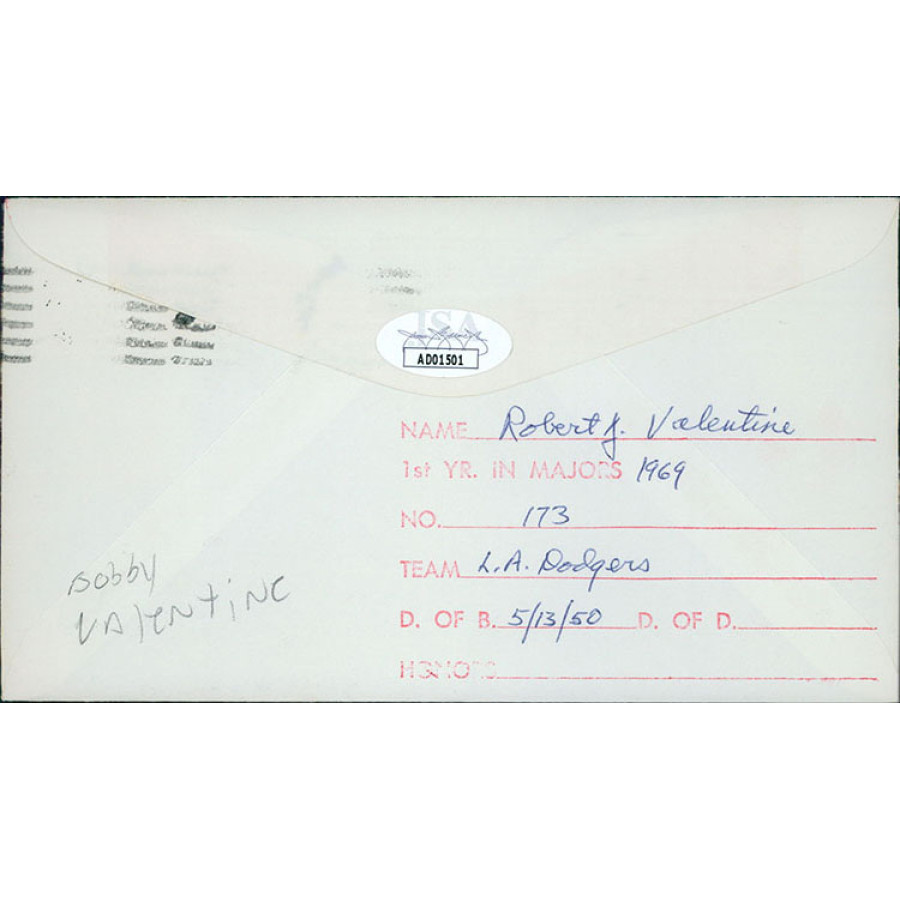 JSA
AD01501
NAME Robert J. Valentine
1st YR. IN MAJORS 1969
NO. 173
TEAM L.A. Dodgers
D. OF B. 5/13/50 D. OF D.
HONORS
Bobby
VAlENTiNE